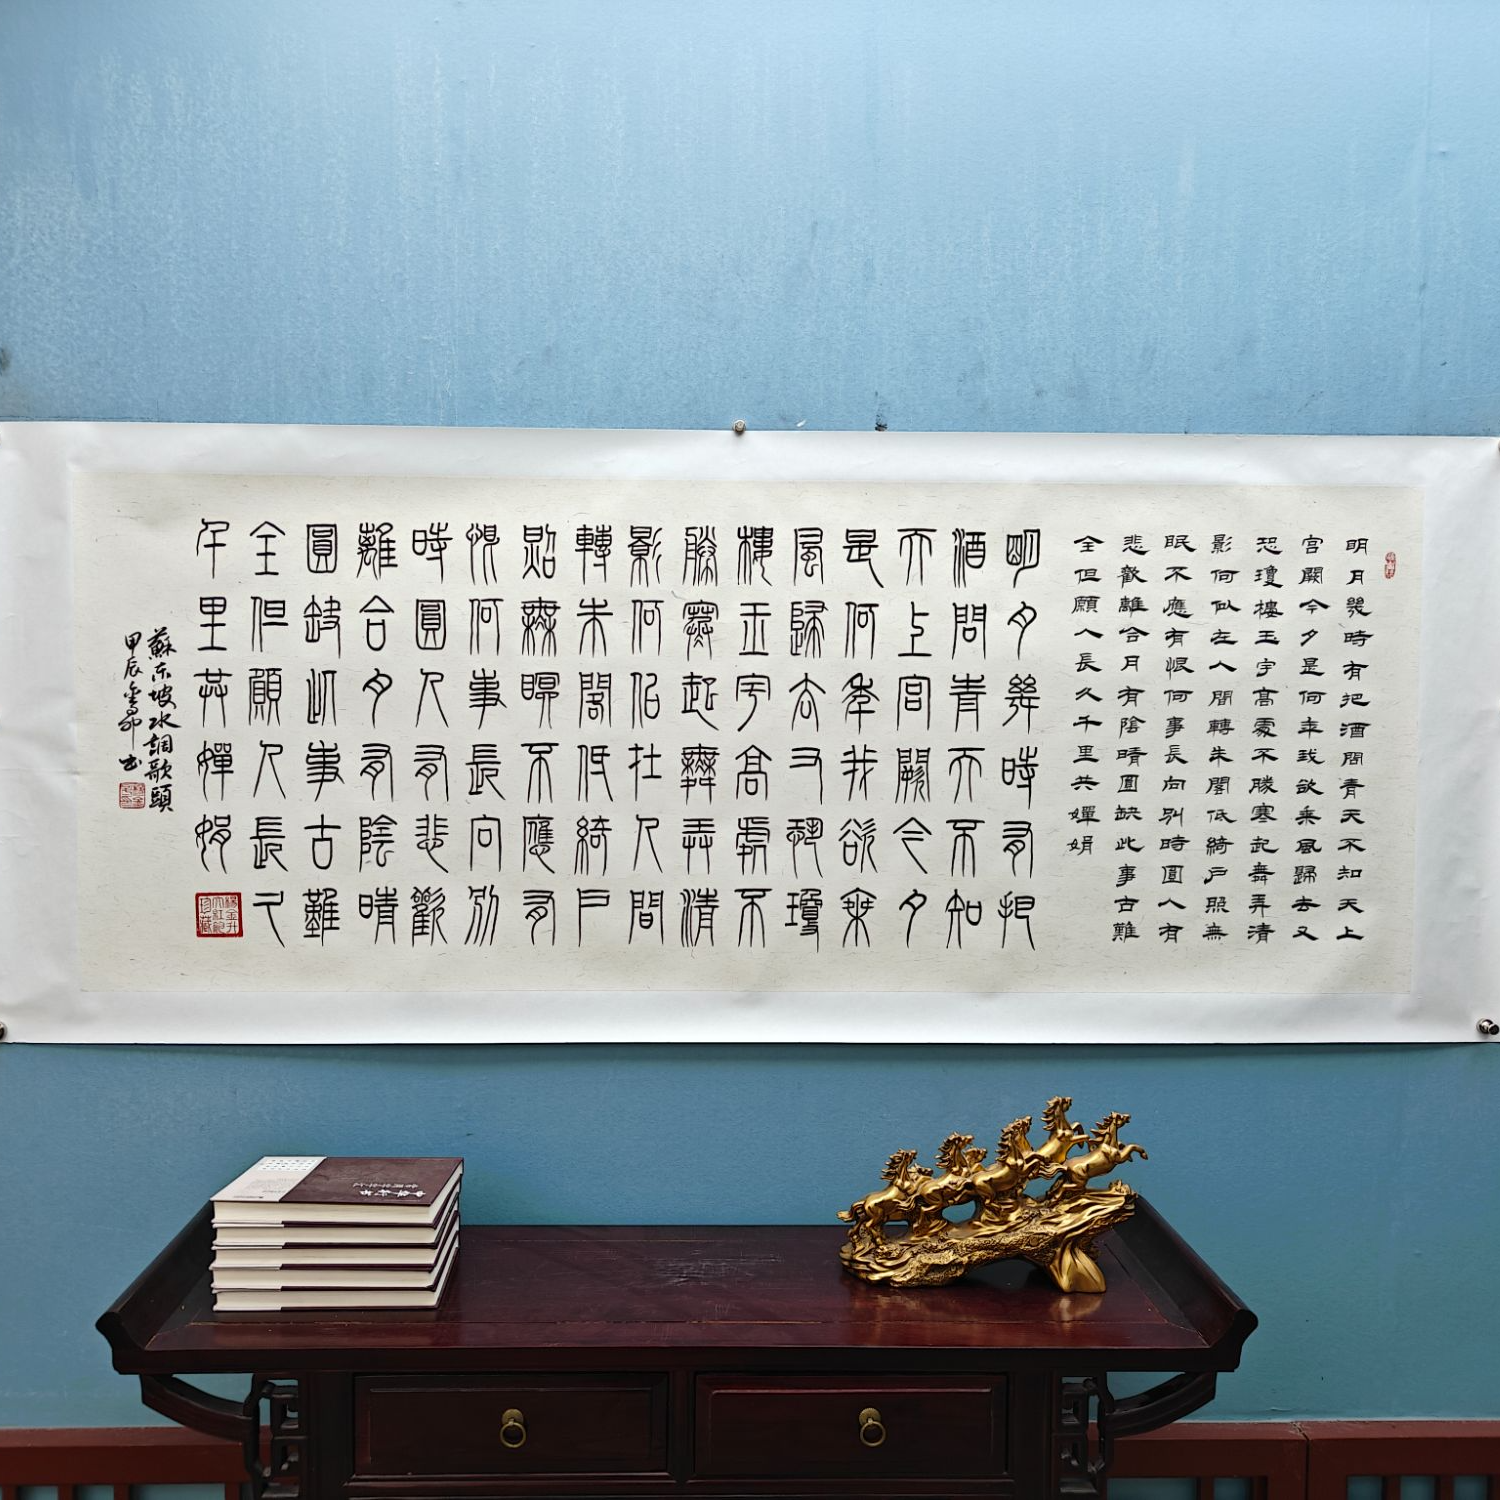 明月幾時有把酒問青天不知天上
宫闕今夕是何年我欲乘風歸去又
恐瓊樓玉宇高處不勝寒起舞弄清
影何似在人間轉朱閣低綺户照無
眠不應有恨何事長向别時圓人有
悲歡離合月有陰晴圓缺此事古難
全但願人長久千里共嬋娟
明月幾時有把
酒問青天不知
天上宫闕今夕
是何年我欲乘
風歸去又恐瓊
樓玉宇高處不
勝寒起舞弄清
影何似在人間
轉朱閣低綺户
照無眠不應有
恨何事長向别
時圓人有悲歡
離合月有陰晴
圓缺此事古難
全但願人長久
千里共嬋娟
蘇东坡水調歌頭
甲辰书